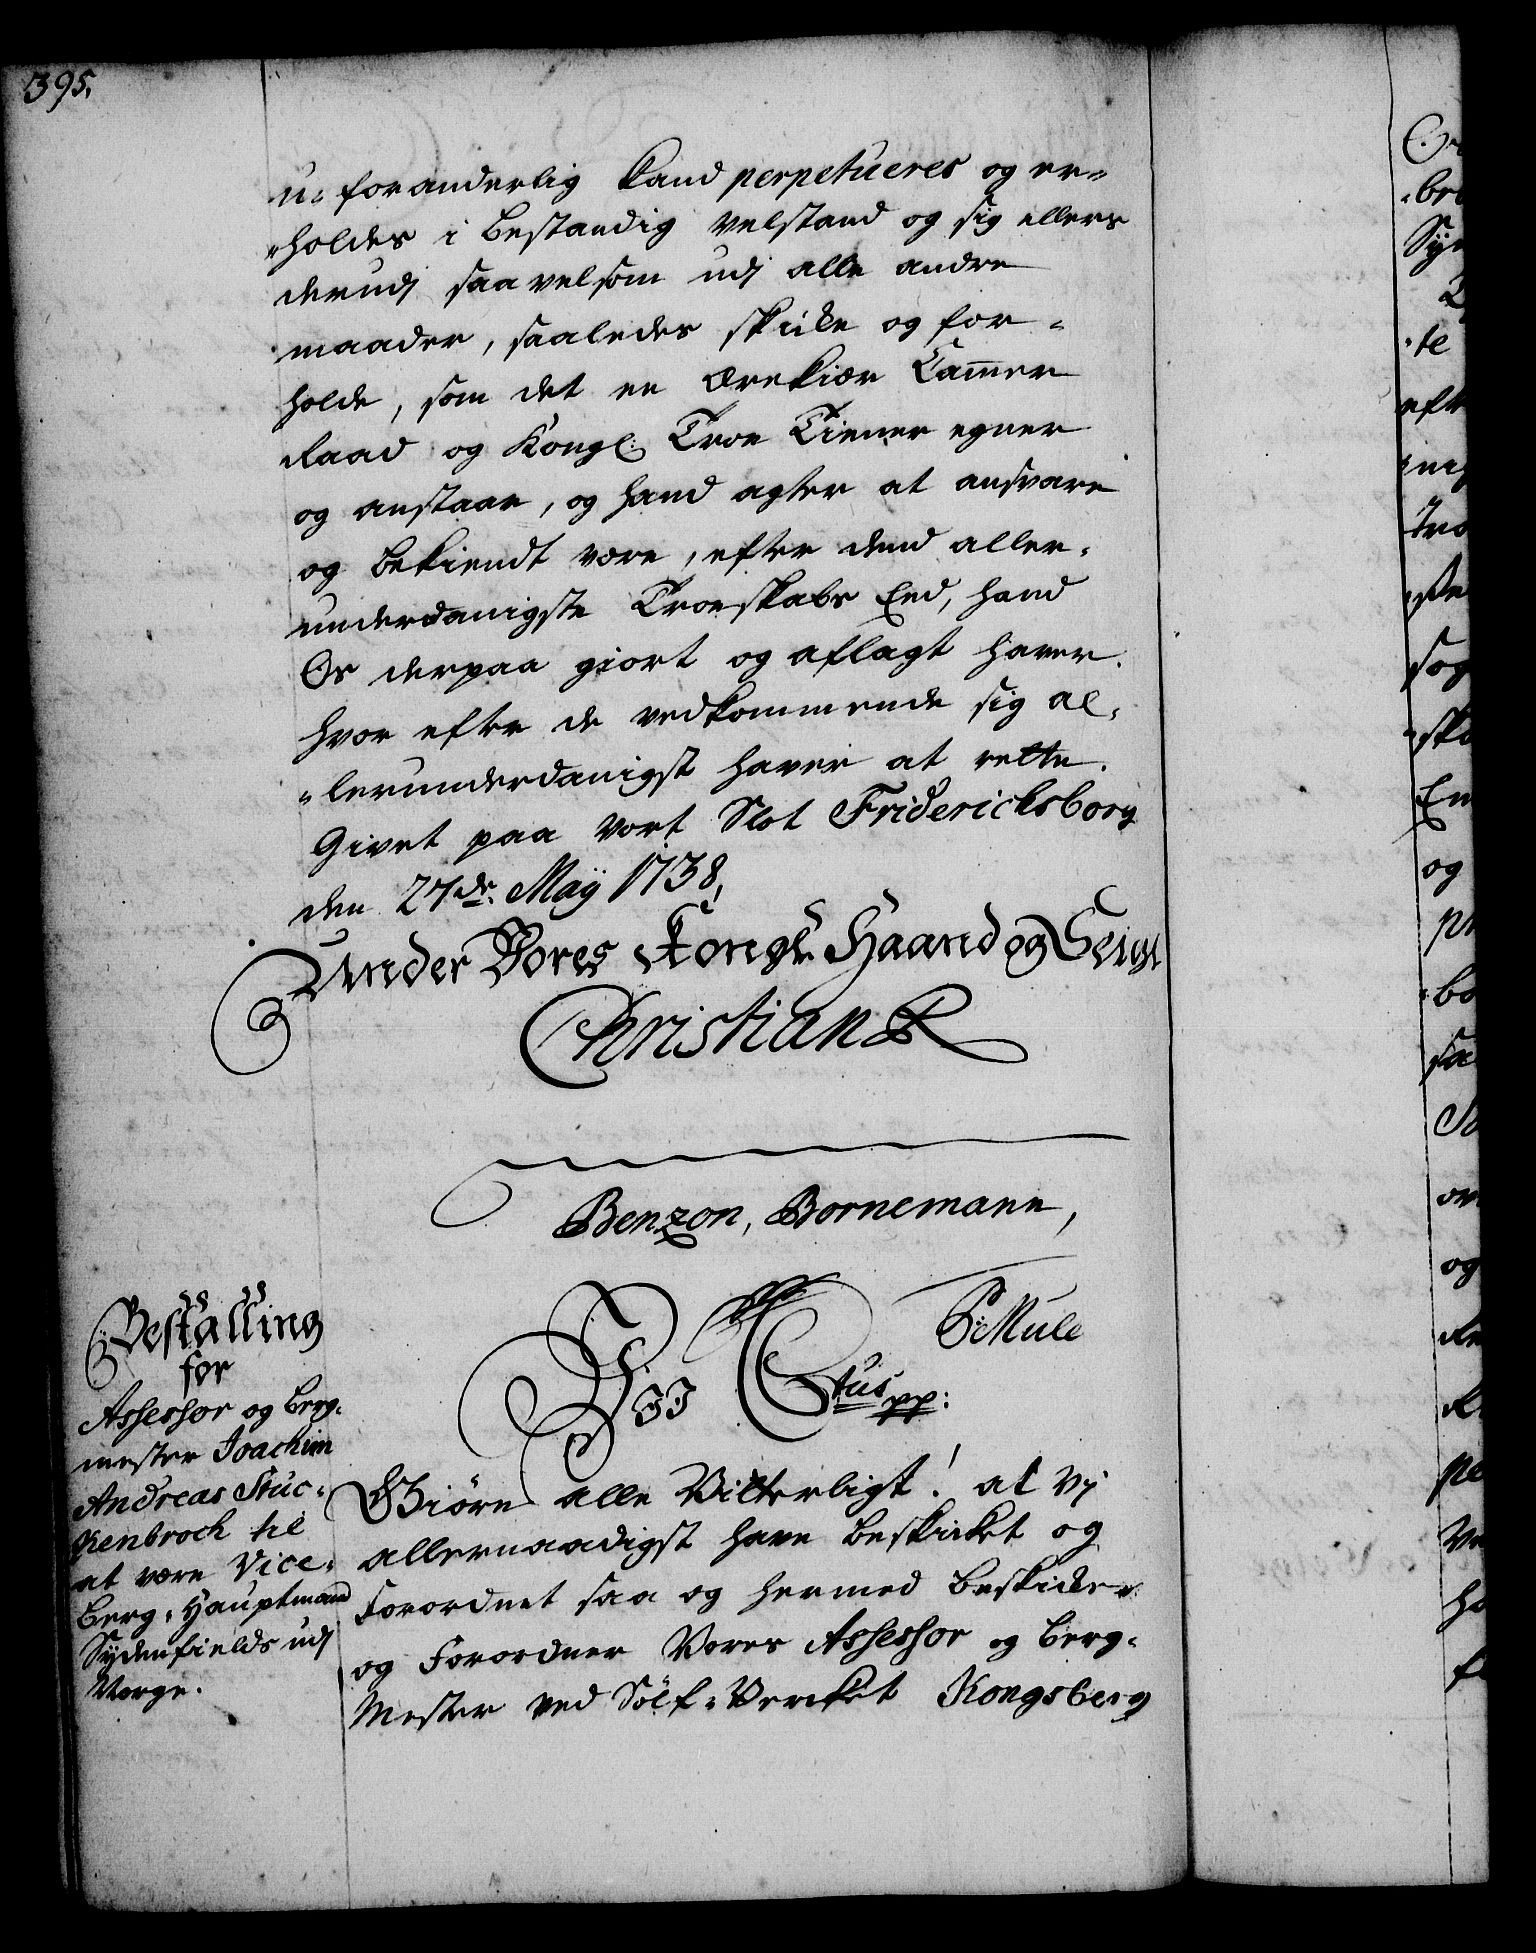 395.
u- foranderlig kand perpetueres og er-
-holdes i bestandig velstand og sig ellers
derudj saavelsom udj alle andre
maader, saaledes skicke og for-
holde, som det en Ærekiær Cammer
Raad og Kongl: Troe Tiener egner
og anstaar, og hand agter at ansvare
og bekiendt være, efter dend aller-
underdanigste Troeskabs Eed, hand
Os derpaa giort og aflagt haver.
hvor efter de vedkommende sig al-
-lerunderdanigst haver at rette.
Givet paa vort Slot Fridericksborg
den 27de. Maÿ 1738,
Under Vores Kongl: Haand og Seigl
Christian R
Benzon, Bornemann,
P: Mule
Bestalling
for
Assessor og Berg-
mester Joachim
Andreas Stuc-
kenbroch til
at være Vice-
Berg-Hauptmand
Sydenfields udj
Norge.
Vii Ctus pp:
Giöre alle Vitterligt! at Vj
allernaadigst have beskicket og
Forordnet saa og hermed beskicker
og Forordner Vores Assessor og Berg-
Mester ved Sölf-Vercket Kongsberg